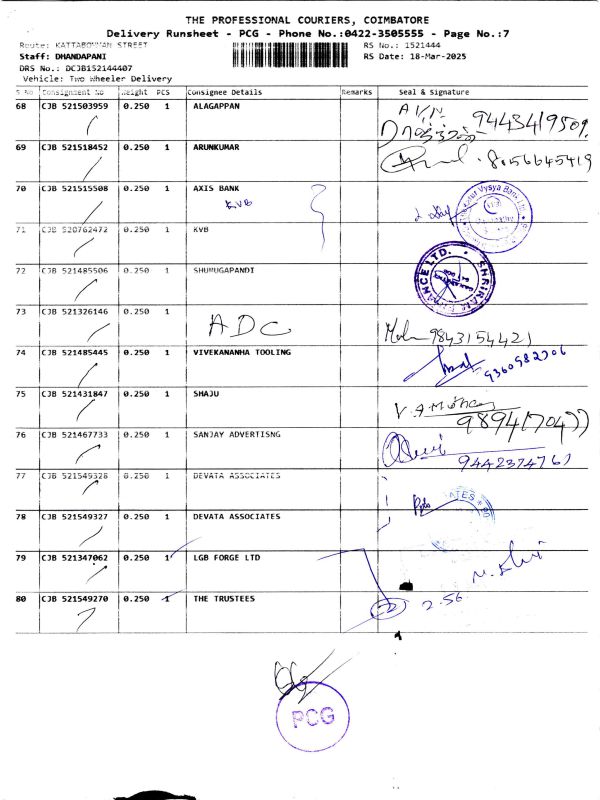 THE PROFESSIONAL COURIERS, COIMBATORE
Delivery Runsheet - PCG - Phone No.:0422-3505555 - Page No.:7
Route: KATTABOMMAN STREET RS No.: 1521444
Staff: DHANDAPANI RS Date: 18-Mar-2025
DRS No.: DCJB152144407
Vehicle: Two Wheeler Delivery
S No Consignment No Weight PCS Consignee Details Remarks Seal & Signature
68 CJB 521503959 0.250 1 ALAGAPPAN
69 CJB 521518452 0.250 1 ARUNKUMAR 8056645419
70 CJB 521515508 0.250 1 AXIS BANK
KVB
71 CJB 520762472 0.250 1 KVB
72 CJB 521485506 0.250 1 SHUNUGAPANDI
SHRIRAM FINANCE LTD.
73 CJB 521326146 0.250 1 ADC 9843154421
74 CJB 521485445 0.250 1 VIVEKANANHA TOOLING 9360982206
75 CJB 521431847 0.250 1 SHAJU
76 CJB 521467733 0.250 1 SANJAY ADVERTISNG
77 CJB 521549328 0.250 1 DEVATA ASSOCIATES
78 CJB 521549327 0.250 1 DEVATA ASSOCIATES
79 CJB 521347062 0.250 1 LGB FORGE LTD
80 CJB 521549270 0.250 1 THE TRUSTEES 2.56
PCG